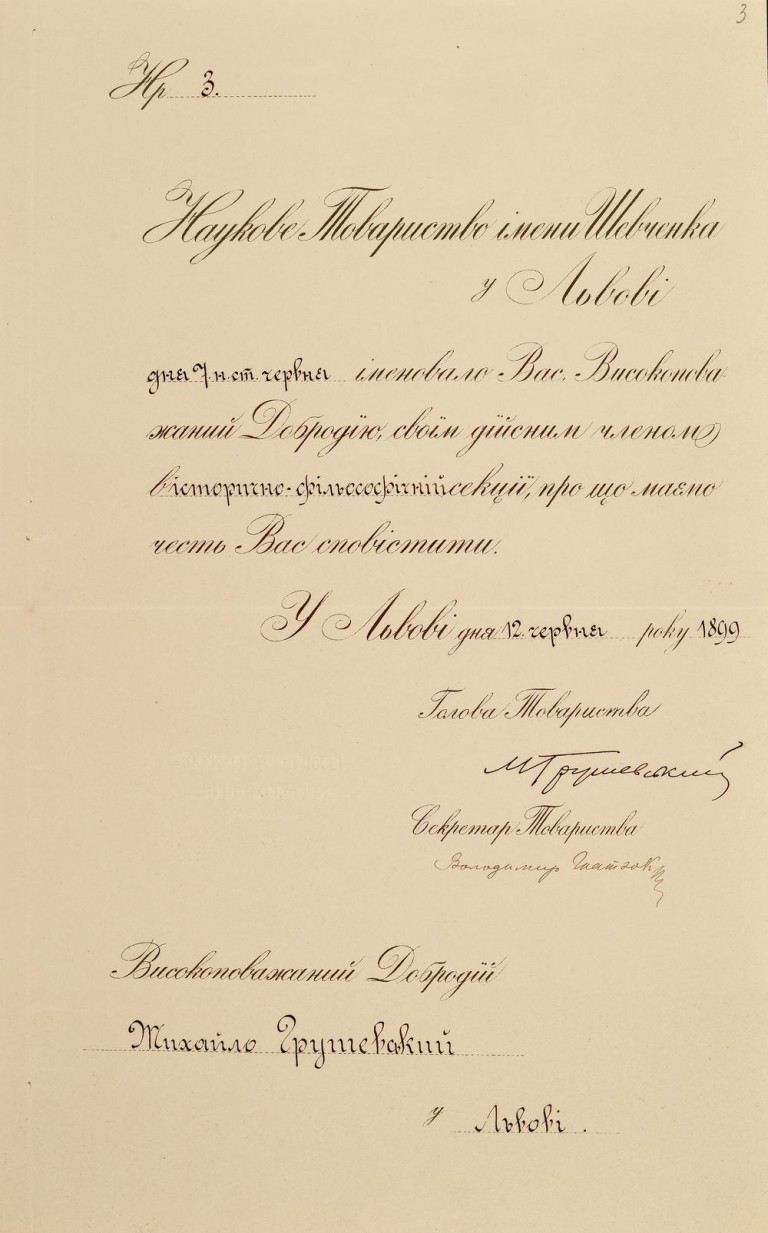 3
Нр 3.
Наукове Товариство імени Шевченка
у Львові
дня 7 н. ст. червня іменовало Вас, Високопова-
жаний Добродїю, своїм дїйсним членом
в історично-фільософічній секциї, про що маємо
честь Вас сповістити.
У Львові дня 12. червня року 1899
Голова Товариства
МГрушевський
Секретар Товариства
Володимир Гнатюк
Високоповажаний Добродїй
Михайло Грушевский
у Львові.